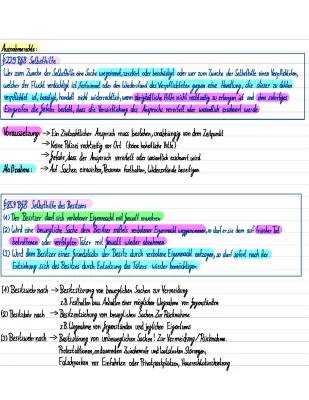 Ausnahmerechte:
§229 BGB Selbsthilfe
Wer zum Zwecke der Selbsthilfe eine Sache wegnimmt, zerstört oder beschädigt oder wer zum Zwecke der Selbsthilfe einen Verpflichteten,
welcher der Flucht verdächtig ist, festnimmt oder den Widerstand des Verpflichteten gegen eine Handlung, die dieser zu dulden
verpflichtet ist, beseitigt, handelt nicht widerrechtlich, wenn obrigkeitliche Hilfe nicht rechtzeitig zu erlangen ist und ohne sofortiges
Eingreifen die Gefahr besteht, dass die Verwirklichung des Anspruchs vereitelt oder wesentlich erschwert wird.
Voraussetzung → Ein Zivilrechtlicher Anspruch muss bestehen, unabhängig von dem Zeitpunkt
→ Keine Polizei rechtzeitig vor Ort (keine hoheitliche Hilfe)
→ Gefahr, dass der Anspruch vereitelt oder wesentlich erschwert wird
Maßnahme: → Auf Sachen einwirken, Personen festhalten, Widerstände beseitigen
§859 BGB Selbsthilfe des Besitzers
(1) Der Besitzer darf sich verbotener Eigenmacht mit Gewalt erwehren
(2) Wird eine bewegliche Sache dem Besitzer mittels verbotener Eigenmacht weggenommen, so darf er sie dem auf frischer Tat
betroffenen oder verfolgten Täter mit Gewalt wieder abnehmen
(3) Wird dem Besitzer eines Grundstücks der Besitz durch verbotene Eigenmacht entzogen, so darf sofort nach der
Entziehung sich des Besitzes durch Entsetzung des Täters wieder bemächtigen.
(1) Besitzwehr nach → Besitzstörung von beweglichen Sachen zur Vermeidung
z.B. Festhalten bzw. Abhalten einer möglichen Wegnahme von Gegenständen
(2) Besitzkehr nach → Besitzentziehung von beweglichen Sachen Zur Rücknahme
z.B. Wegnahme von Gegenständen und jeglichen Eigentums
(3) Besitzwehr nach → Besitzstörung von unbeweglichen Sachen! Zur Vermeidung/Rücknahme.
Protestaktionen, andauernden Zwischenrufe und lautstarken Störungen,
Falschparken vor Einfahrten oder Privatparkplätzen, Hausrechtsdurchsetzung